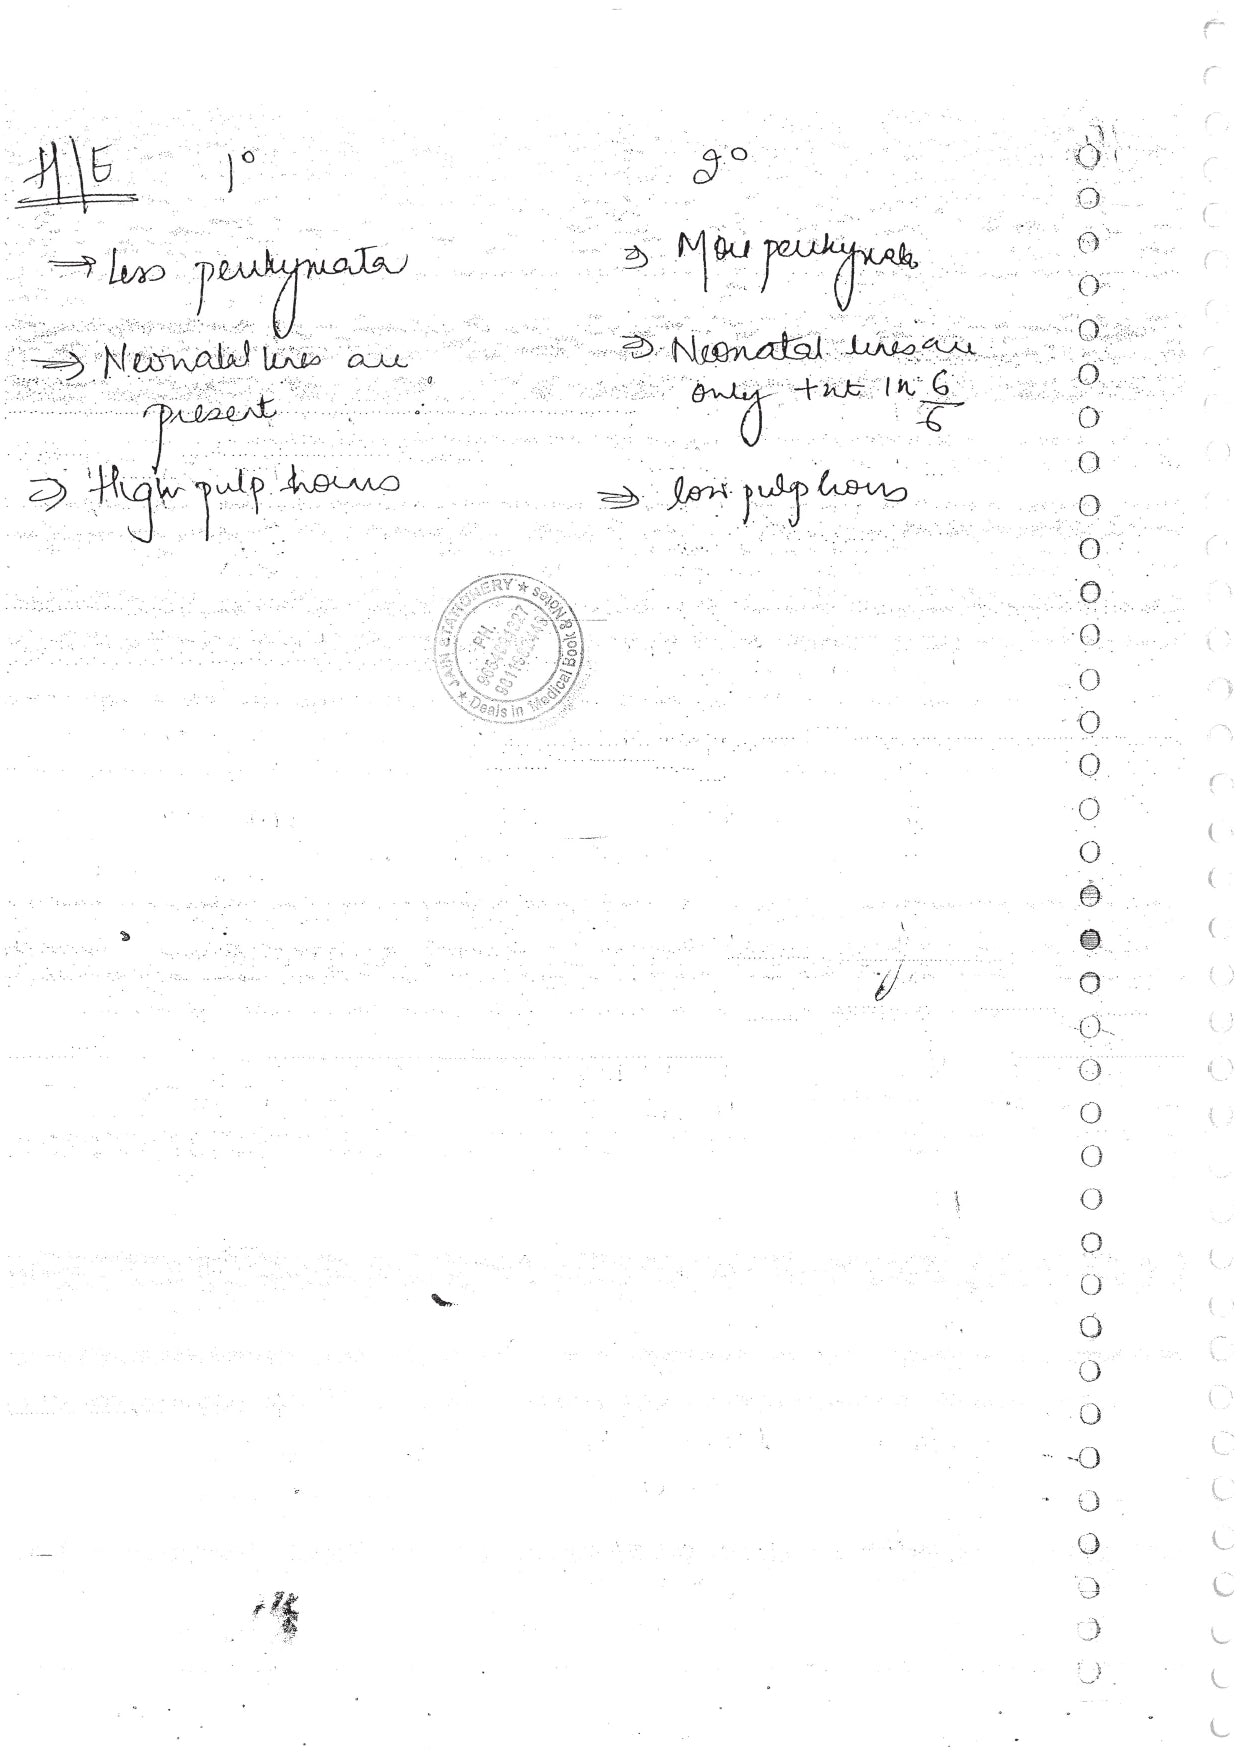 H/E 1° 2°
⇒ Less perikymata ⇒ More perikymata
⇒ Neonatal lines are ⇒ Neonatal lines are
present only +nt in 6/6
⇒ High pulp horns ⇒ low pulp horns
JAIN STATIONERY ★ Deals in Medical Book & Notes ★
PH.